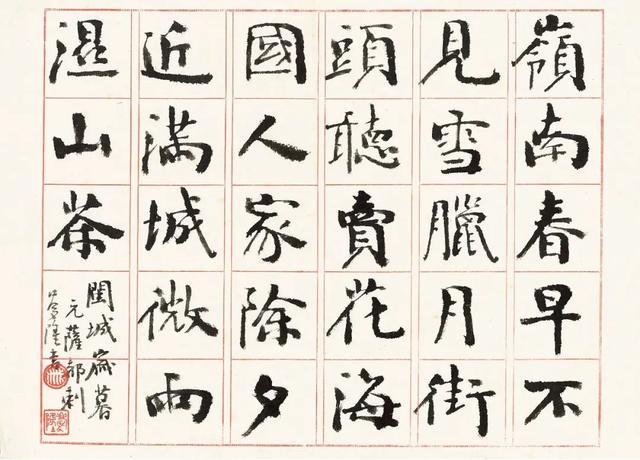 嶺南春早不
見雪臘月街
頭聽賣花海
國人家除夕
近滿城微雨
濕山茶
閩城歲暮
元薩都剌
隆書